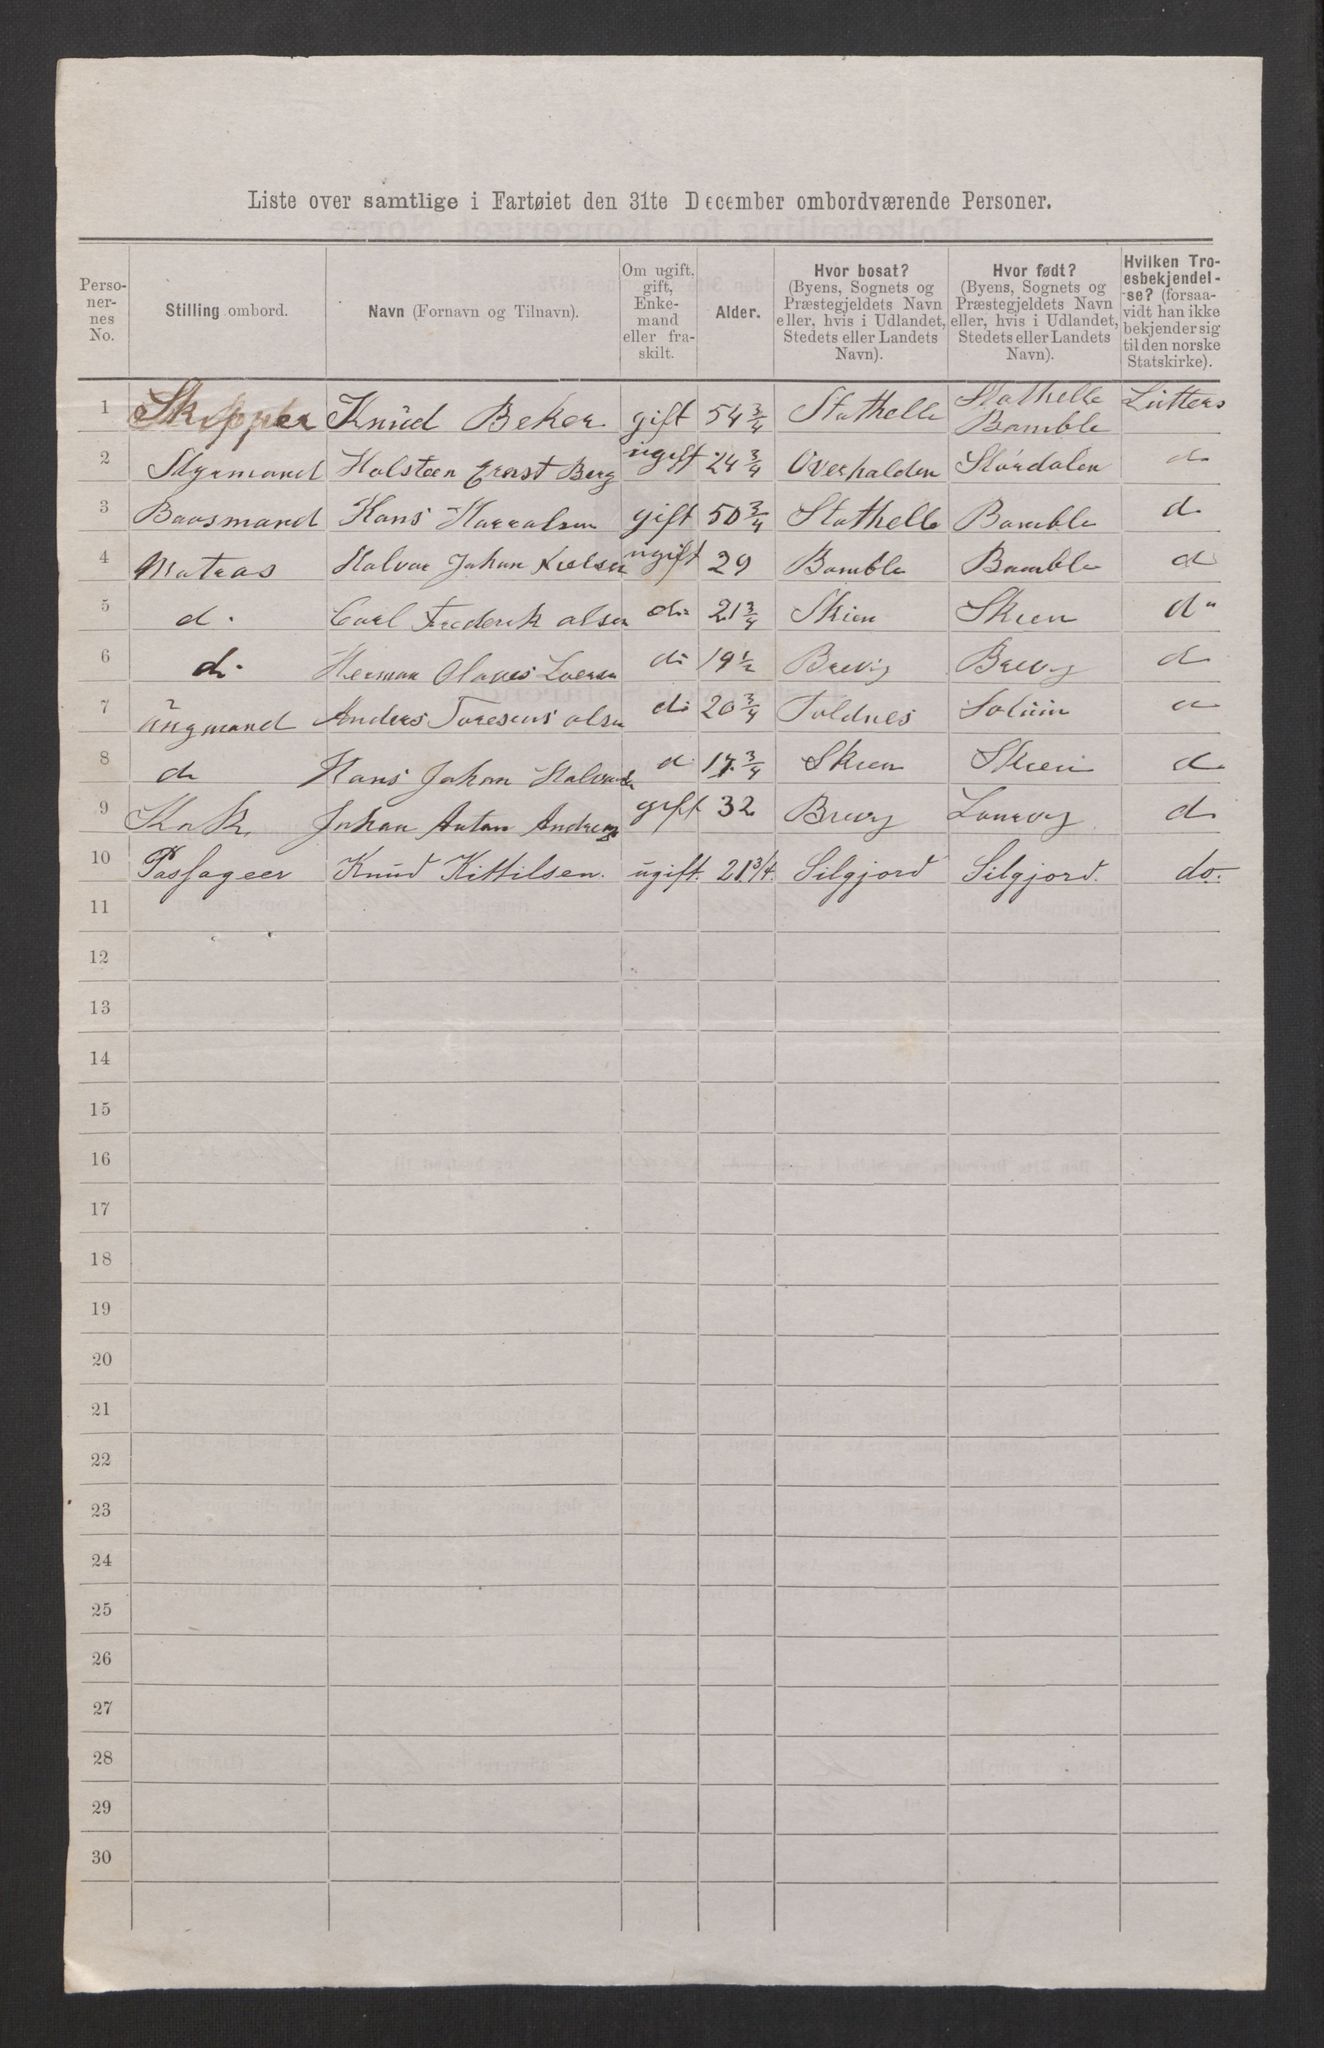 Liste over samtlige i Fartøiet den 31te December ombordværende Personer.
Personernes No. | Stilling ombord. | Navn (Fornavn og Tilnavn). | Om ugift, gift, Enkemand eller fraskilt. | Alder. | Hvor bosat? (Byens, Sognets og Præstegjeldets Navn eller, hvis i Udlandet, Stedets eller Landets Navn). | Hvor født? (Byens, Sognets og Præstegjeldets Navn eller, hvis i Udlandet, Stedets eller Landets Navn). | Hvilken Troesbekjendelse? (forsaavidt han ikke bekjender sig til den norske Statskirke).
1 Skipper Knüd Beker gift 54 3/4 Stathelle Stathelle Bamble Lütters
2 Styrmand Halsteen Ernst Berg ugift 24 3/4 Overhalden Stördalen d
3 Baasmand Hans Harralsen gift 50 3/4 Stathelle Bamble d
4 Matros Halvor Johan Nielsen ugift 29 Bamble Bamble d
5 d. Carl Frederik Olsen do 21 3/4 Skien Skien do
6 do Herman Olaves Loersen do 19 1/2 Brevig Brevig d
7 üngmand Anders Toresens Olsen do 20 3/4 Toldnes Solüm d
8 d Hans Johan d 17 3/4 Skien Skien d
9 Kok Johan Anton gift 32 Brevig Lourvig d
10 Passageer Knud Kittilsen. ugift. 21 3/4. Silgjord Silgjord. do.
11
12
13
14
15
16
17
18
19
20
21
22
23
24
25
26
27
28
29
30